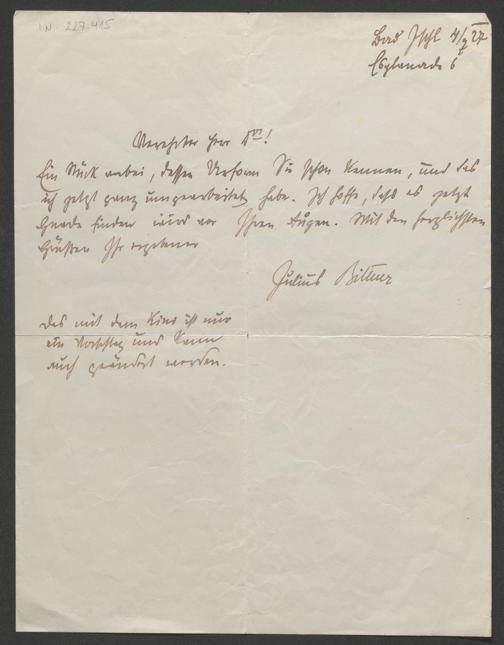 I.N. 227.415
Bad Ischl 4/7 27
Esplanade 6
Verehrter Herr Dr!
Ein Stück anbei, dessen Urform Sie schon kennen, und das
ich jetzt ganz umgearbeitet habe. Ich hoffe, daß es jetzt
Gnade finden wird vor Ihren Augen. Mit den herzlichsten
Grüßen Ihr ergebener
Julius Bittner
Das mit dem Kino ist nur
ein Vorschlag und kann
auch geändert werden.